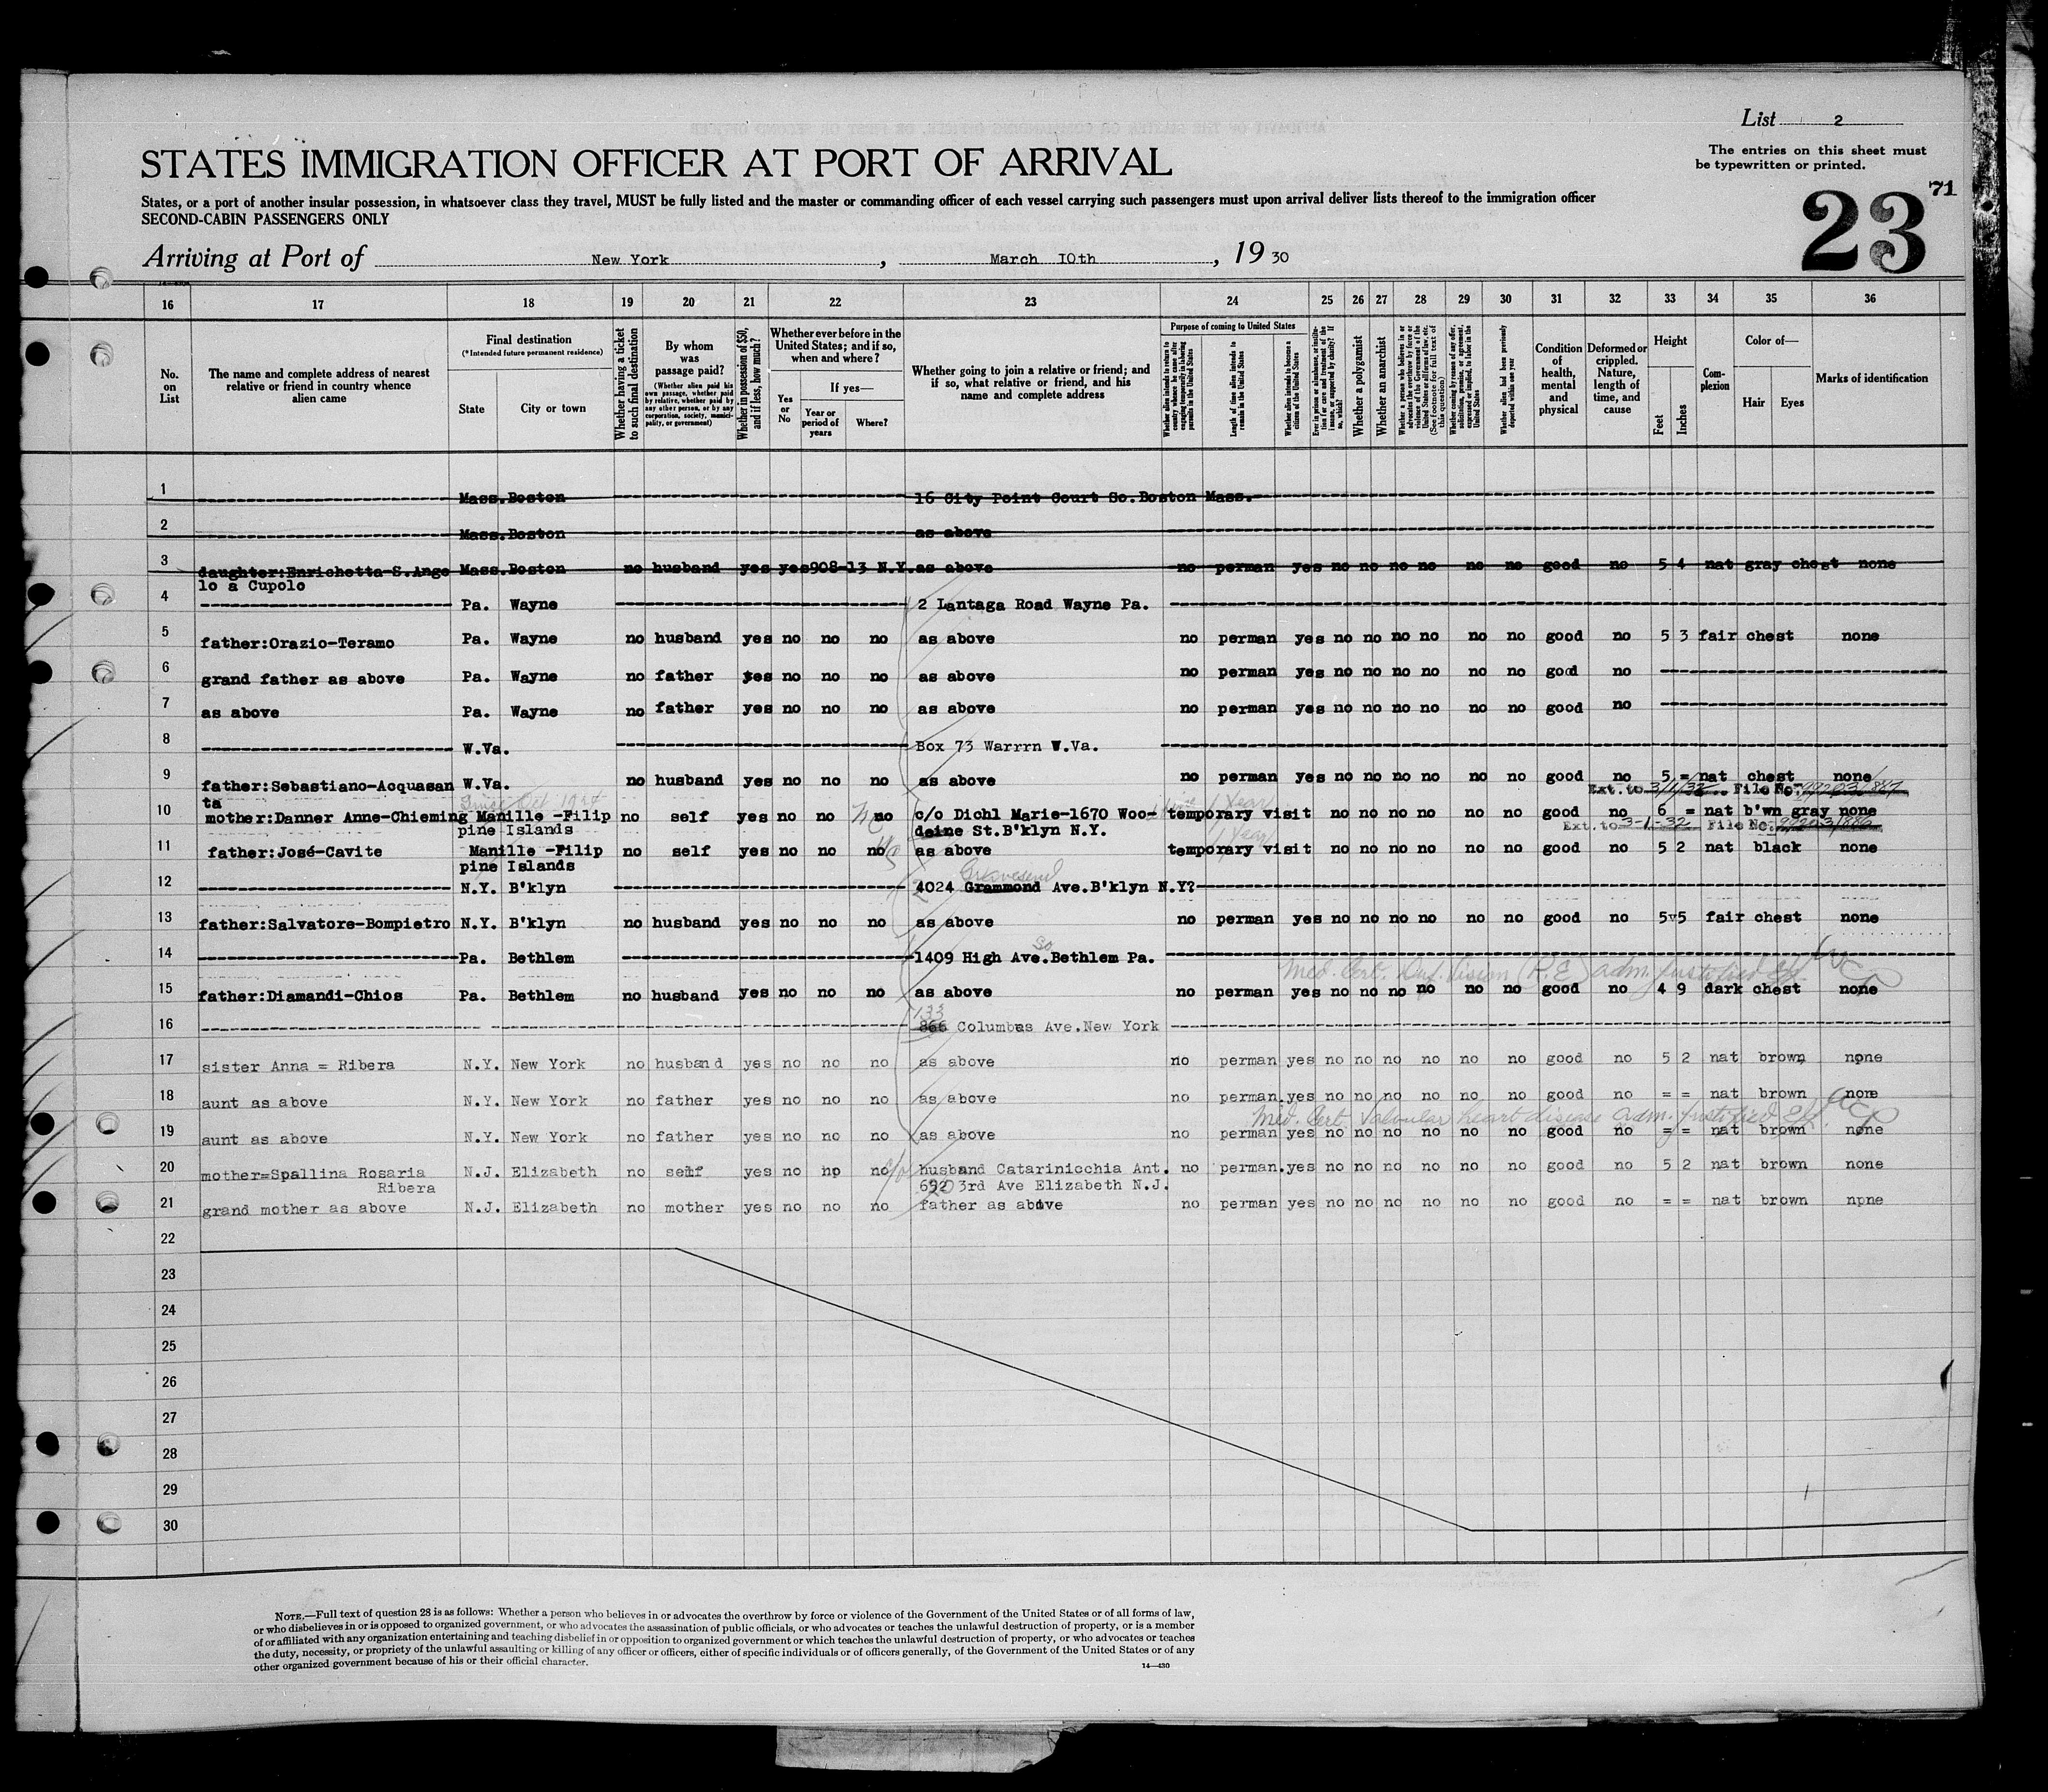 List 2
The entries on this sheet must
be typewritten or printed.
STATES IMMIGRATION OFFICER AT PORT OF ARRIVAL
71
23
States, or a port of another insular possession, in whatsoever class they travel, MUST be fully listed and the master or commanding officer of each vessel carrying such passengers must upon arrival deliver lists thereof to the immigration officer
SECOND-CABIN PASSENGERS ONLY
Arriving at Port of New York, March 10th, 1930
16 17 18 19 20 21 22 23 24 25 26 27 28 29 30 31 32 33 34 35 36
No. on List
The name and complete address of nearest relative or friend in country whence alien came
Final destination
(*Intended future permanent residence)
State
City or town
Whether having a ticket to such final destination
By whom was passage paid?
(Whether alien paid his own passage, whether paid by relative, whether paid by any other person, or by any corporation, society, municipality, or government)
Whether in possession of $50, and if less, how much?
Whether ever before in the United States; and if so, when and where?
Yes or No
If yes—
Year or period of years
Where?
Whether going to join a relative or friend; and if so, what relative or friend, and his name and complete address
Purpose of coming to United States
Length of time alien intends to remain in the United States
Whether alien intends to become a citizen of the United States
Whether a polygamist
Whether an anarchist
Whether alien had been previously deported within one year
Condition of health, mental and physical
Deformed or crippled. Nature, length of time, and cause
Height
Feet
Inches
Complexion
Color of—
Hair
Eyes
Marks of identification
1 Mass. Boston 16 City Point Court So.Boston Mass.
2 Mass. Boston as above
3 daughter:Enrichetta-S.Ange Mass. Boston no husband yes yes 908-13 N.Y. as above no perman yes no no no no no no good no 5 4 nat gray chest none
lo a Cupolo
4 Pa. Wayne 2 Lantaga Road Wayne Pa.
5 father:Orazio-Teramo Pa. Wayne no husband yes no no no as above no perman yes no no no no no no good no 5 3 fair chest none
6 grand father as above Pa. Wayne no father yes no no no as above no perman yes no no no no no no good no
7 as above Pa. Wayne no father yes no no no as above no perman yes no no no no no no good no
8 W.Va. Box 73 Warrrn W.Va.
9 father:Sebastiano-Acquasan W.Va. no husband yes no no no as above no perman yes no no no no no no good no 5 = nat chest none
ta
Ext. to 3/1/32 File No. 99203/887
10 mother:Danner Anne-Chieming Manille -Filip no self yes no no no c/o Dichl Marie-1670 Woo- temporary visit no no no no no no good no 6 = nat b'wn gray none
pine Islands deine St.B'klyn N.Y.
1 Year
Ext. to 3-1-32 File No. 99203/886
11 father:José-Cavite Manille -Filip no self yes no no no as above temporary visit no no no no no no good no 5 2 nat black none
pine Islands
1 Year
12 N.Y. B'klyn 4024 Grammond Ave.B'klyn N.Y?
Gravesend
13 father:Salvatore-Bompietro N.Y. B'klyn no husband yes no no no as above no perman yes no no no no no no good no 5 5 fair chest none
14 Pa. Bethlem 1409 High Ave.Bethlem Pa.
So
Med. Cert. Def. Vision (R.E.) adm. justified
15 father:Diamandi-Chios Pa. Bethlem no husband yes no no no as above no perman yes no no no no no no good no 4 9 dark chest none
133
16 866 Columbus Ave.New York
17 sister Anna = Ribera N.Y. New York no husband yes no no no as above no perman yes no no no no no no good no 5 2 nat brown none
18 aunt as above N.Y. New York no father yes no no no as above no perman.yes no no no no no no good no = = nat brown none
Med. Cert. Valvular heart disease adm. justified
19 aunt as above N.Y. New York no father yes no no no as above no perman yes no no no no no no good no = = nat brown none
20 mother=Spallina Rosaria N.J. Elizabeth no self yes no no no husband Catarinicchia Ant. no perman.yes no no no no no no good no 5 2 nat brown none
Ribera 692 3rd Ave Elizabeth N.J.
21 grand mother as above N.J. Elizabeth no mother yes no no no father as above no perman yes no no no no no no good no = = nat brown none
22
23
24
25
26
27
28
29
30
NOTE.—Full text of question 28 is as follows: Whether a person who believes in or advocates the overthrow by force or violence of the Government of the United States or of all forms of law,
or who disbelieves in or is opposed to organized government, or who advocates the assassination of public officials, or who advocates or teaches the unlawful destruction of property, or is a member
of or affiliated with any organization entertaining and teaching disbelief in or opposition to organized government or which teaches the unlawful destruction of property, or who advocates or teaches
the duty, necessity, or propriety of the unlawful assaulting or killing of any officer or officers, either of specific individuals or of officers generally, of the Government of the United States or of any
other organized government because of his or their official character.
14—430